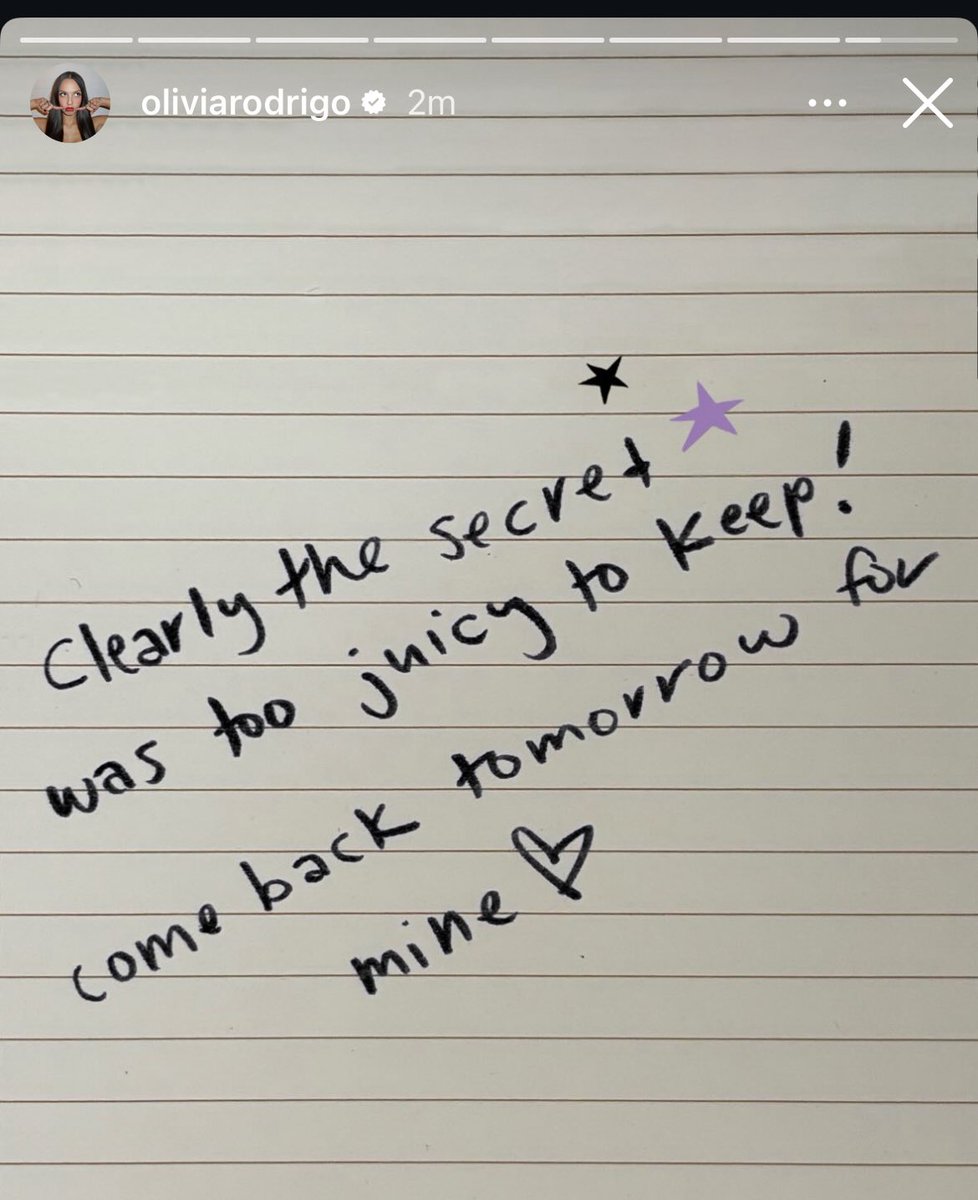 oliviarodrigo 2m
Clearly the secret
was too juicy to keep!
come back tomorrow for
mine